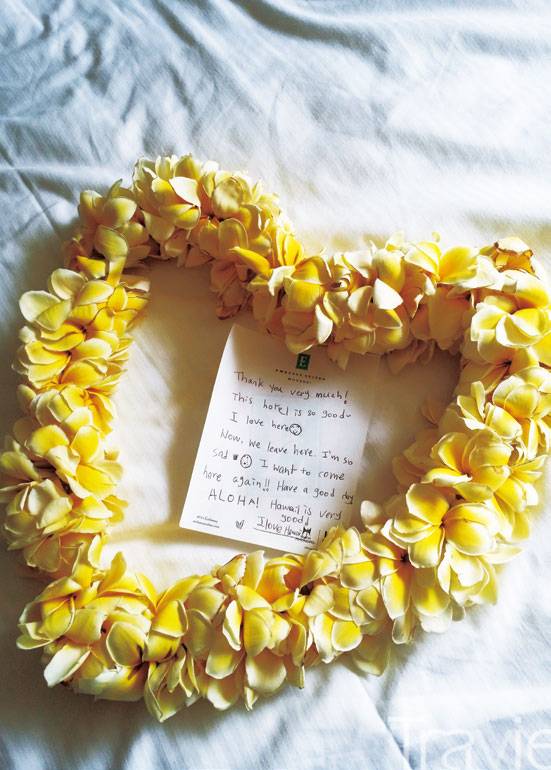 E
EMBASSY SUITES
HOTELS
Thank you very much!
This hotel is so good~
I love here
Now, we leave here. I'm so
sad I want to come
here again!! Have a good day
ALOHA! Hawaii is very
good!
I love Hawaii
Travie